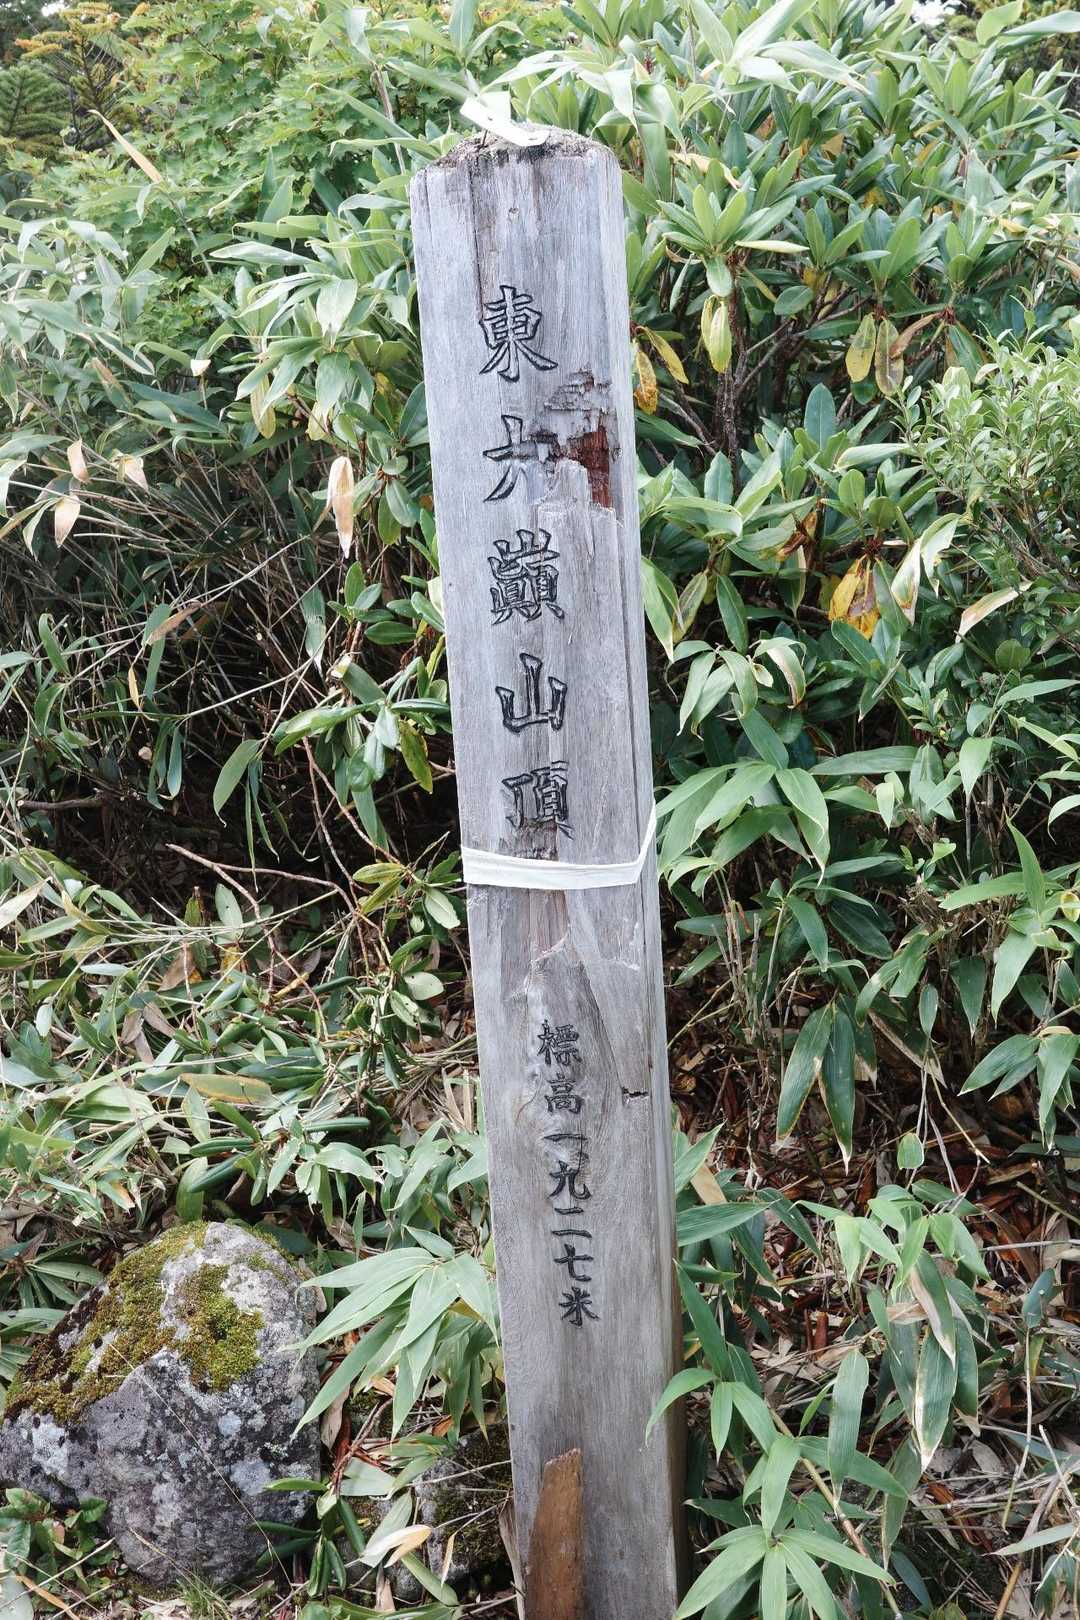 東大巓山頂
標高一九二七米